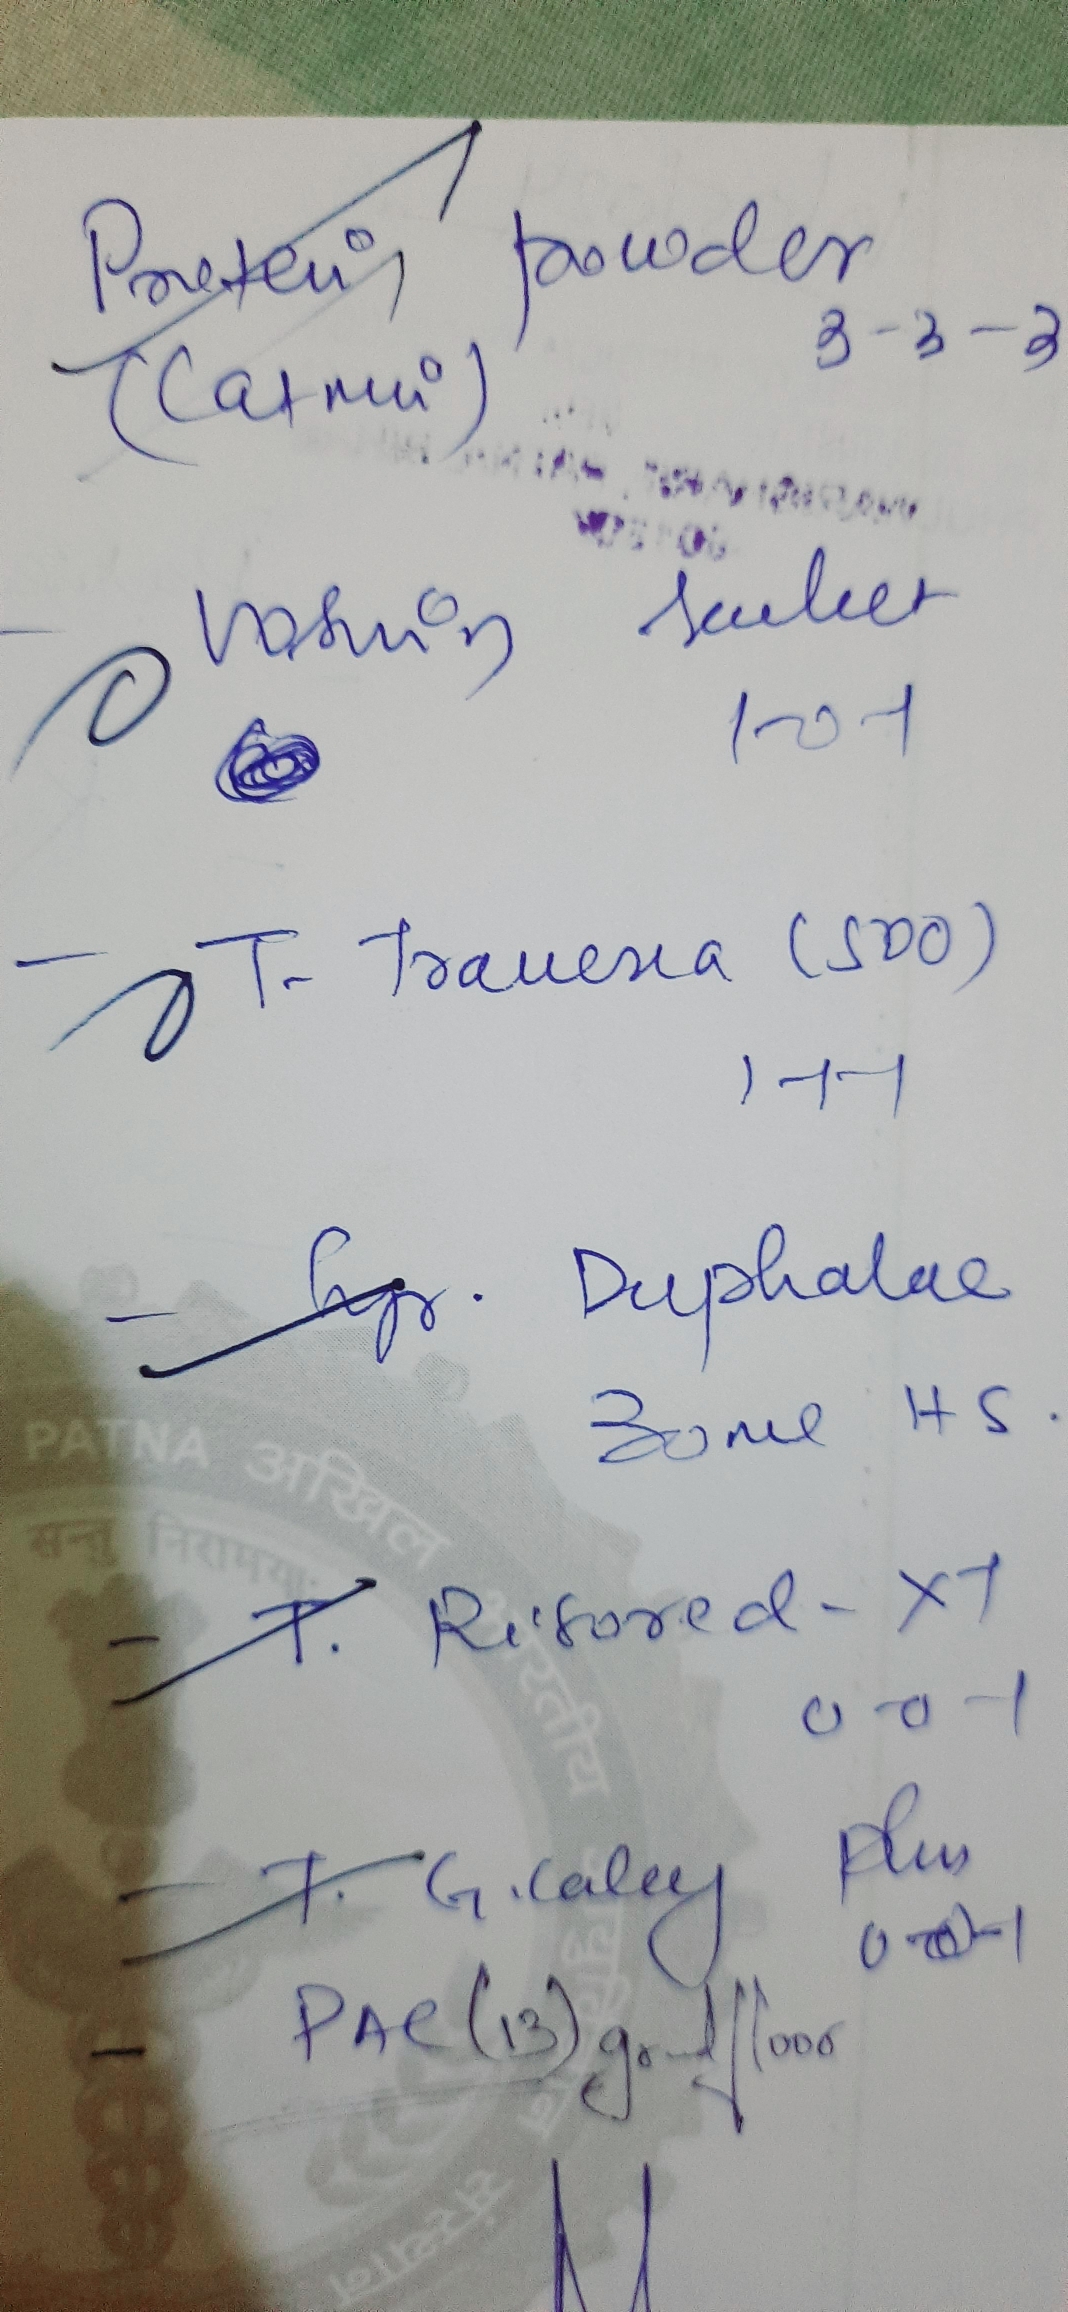 Protein powder
3-3-3
(Catnui)
- sachet
1-0-1
- T. Tranexa (500)
1-1-1
- Syp. Duphalac
30ml HS.
- T. Risored - XT
0-0-1
- T. G. calcy plus
0-0-1
- PAC (13) ground floor
PATNA अखिल भारतीय
सन्तु निरामयाः
संस्थान